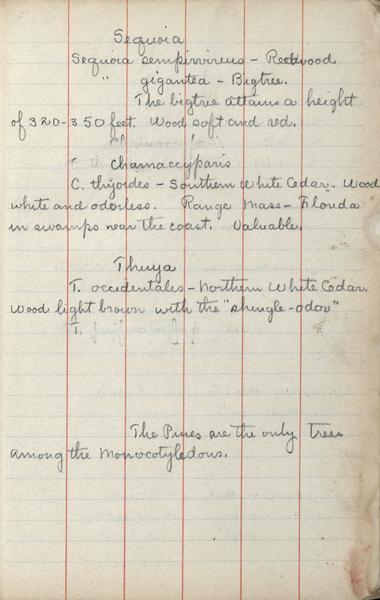 Sequoia
Sequoia sempirvirens - Redwood
" gigantea - Bigtree.
The bigtree attains a height
of 320-350 feet. Wood soft and red.
Chamaccyparis
C. thyoides - Southern White Cedar. Wood
white and odorless. Range Mass - Florida
in swamps near the coast. Valuable.
Thuya
T. occidentales - Northern White Cedar.
Wood light brown with the "shingle-odor"
T.
The Pines are the only trees
among the Monocotyledons.